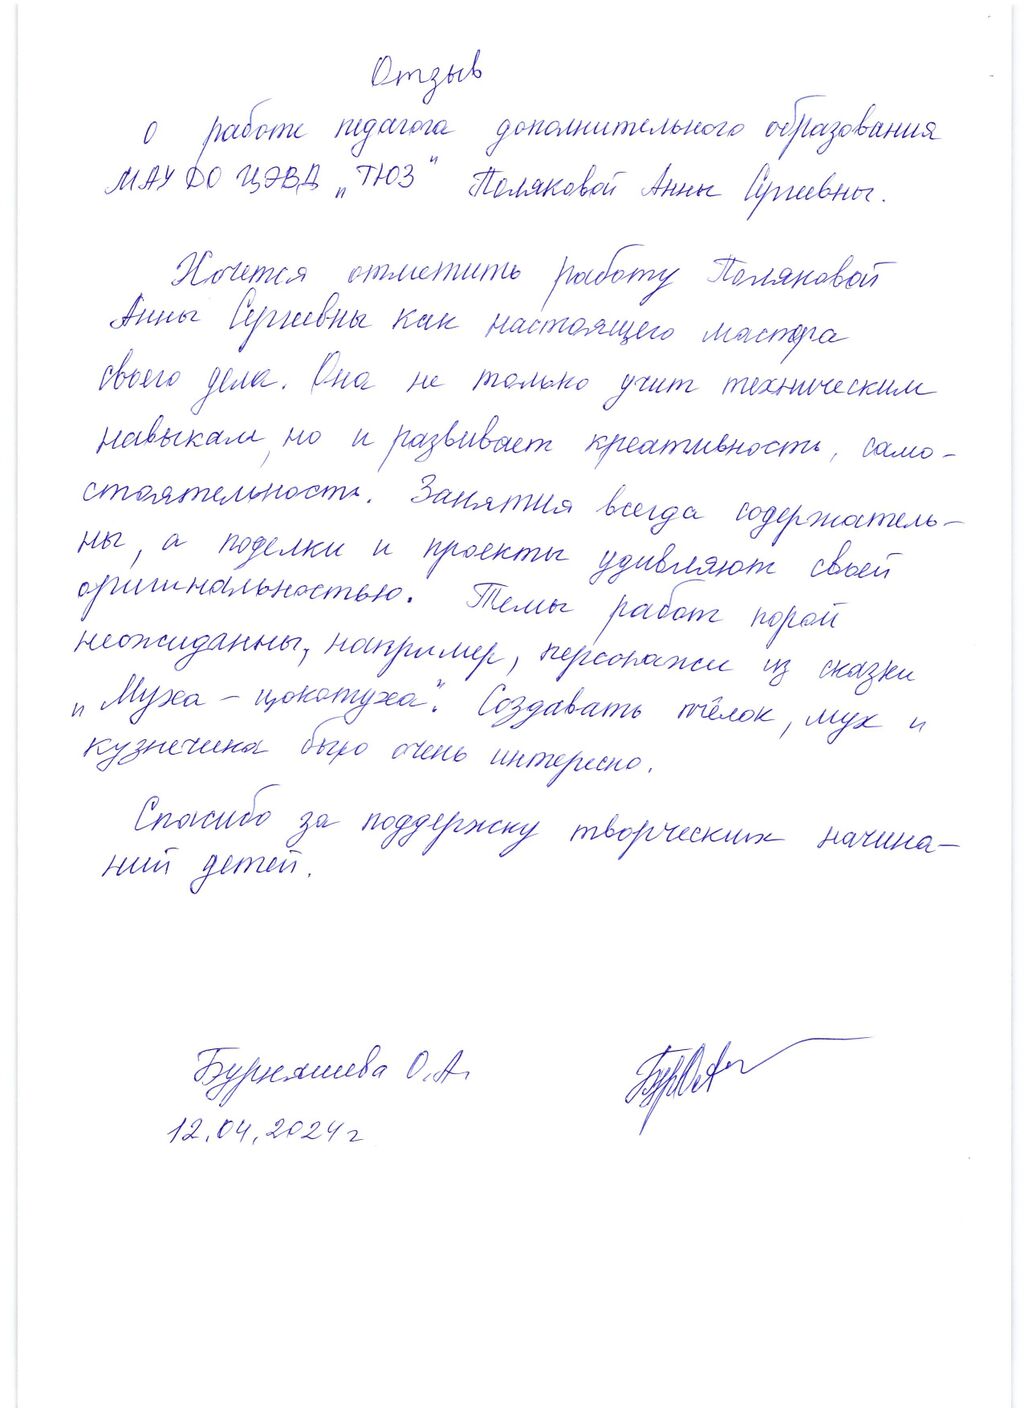 Отзыв
о работе педагога дополнительного образования
МАУ ДО ЦЭВД „ТЮЗ" Поляковой Анны Сергеевны.
Хочется отметить работу Поляковой
Анны Сергеевны как настоящего мастера
своего дела. Она не только учит техническим
навыкам, но и развивает креативность, само-
стоятельность. Занятия всегда содержатель-
ны, а поделки и проекты удивляют своей
оригинальностью. Темы работ порой
неожиданны, например, персонажи из сказки
„Муха - цокотуха". Создавать пчёлок, мух и
кузнечика было очень интересно.
Спасибо за поддержку творческих начина-
ний детей.
Бурняшева О.А.
12.04.2024г